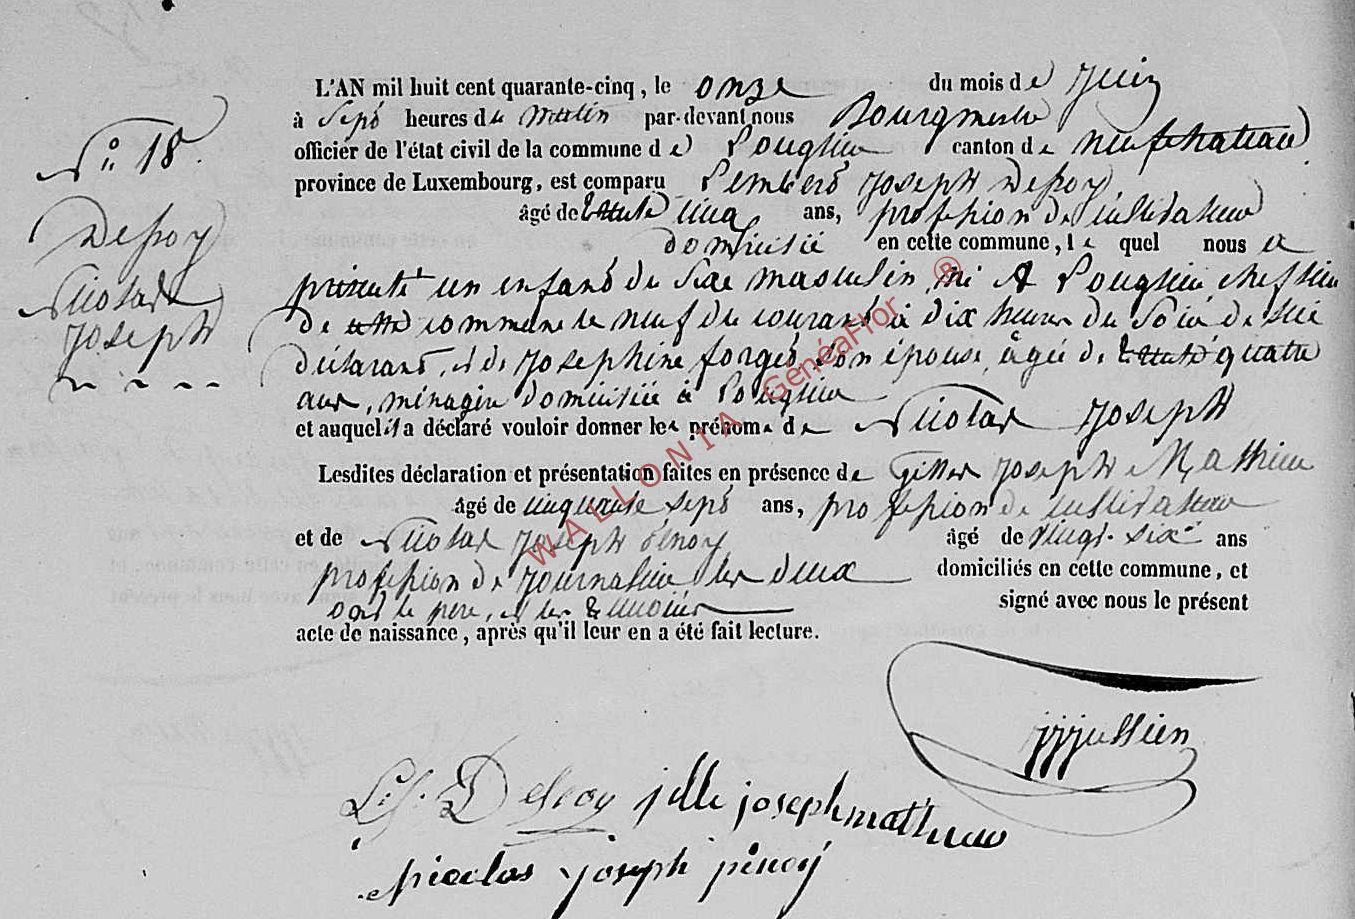 N° 18.
Desroy
Nicolas
Joseph
L'AN mil huit cent quarante-cinq, le onze du mois de Juin
à Sept heures du Matin par-devant nous Bourgmestre
officier de l'état civil de la commune de Longlier canton de neufchateau
province de Luxembourg, est comparu Lembert Joseph Desroy
âgé de trente cinq ans, profession de cultivateur
domicilié en cette commune, lequel nous a
présenté un enfant du sexe masculin, né A Longlier chef lieu
de cette commune le neuf du courant à dix heures du Soir de lui
déclarant, et de Josephine forget, son épouse, âgée de trente quatre
ans, ménagère domiciliée à Longlier
et auquel il a déclaré vouloir donner les prénoms de Nicolas Joseph
Lesdites déclaration et présentation faites en présence de Gilles Joseph Mathieu
âgé de cinquante sept ans, profession de cultivateur
et de Nicolas Joseph Pinoy âgé de vingt-six ans
profession de Journalier les deux domiciliés en cette commune, et
ont le père, et les témoins signé avec nous le présent
acte de naissance, après qu'il leur en a été fait lecture.
L. J. Desroy jille joseph mathieu
nicolas joseph pinoy
WALLONIA GenéaFlor ®